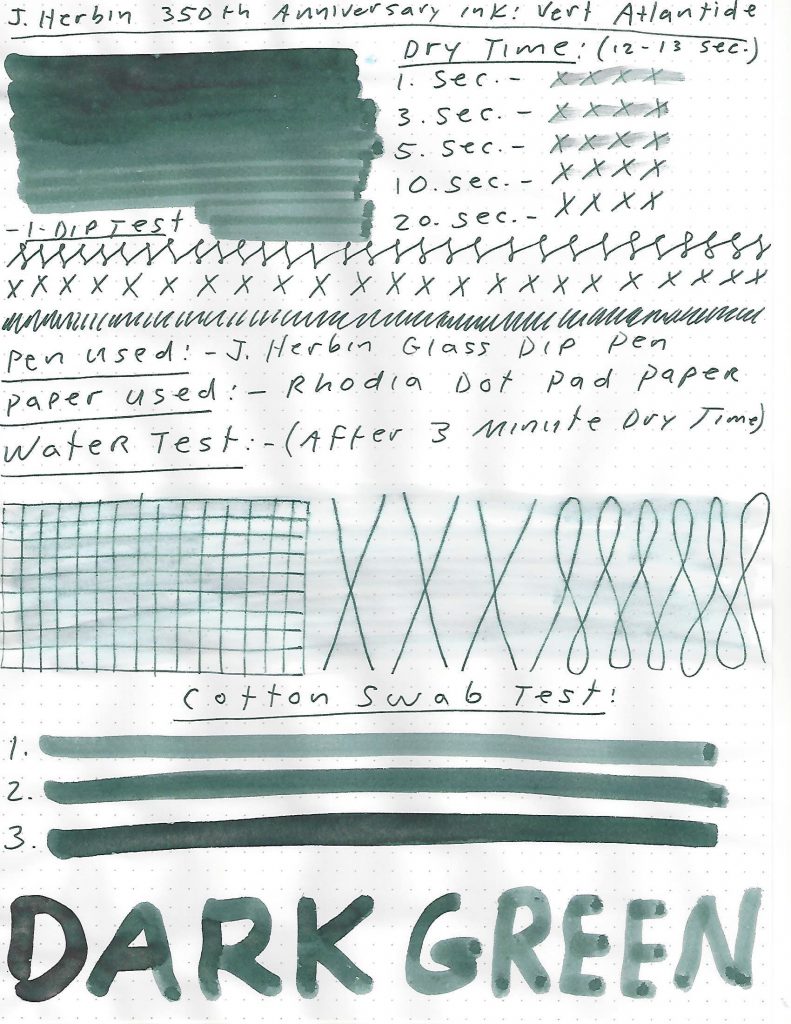 J. Herbin 350th Anniversary ink: Vert Atlantide
Dry Time: (12-13 sec.)
1. sec. - x x x x
3. sec. - x x x x
5. sec. - x x x x
10. sec. - x x x x
20. sec. - x x x x
-1- Dip Test
x x x x x x x x x x x x x x x x x x x x x x x
Pen used: - J. Herbin Glass Dip Pen
Paper used: - Rhodia Dot Pad Paper
Water Test: - (After 3 Minute Dry Time)
Cotton Swab Test:
1.
2.
3.
DARK GREEN